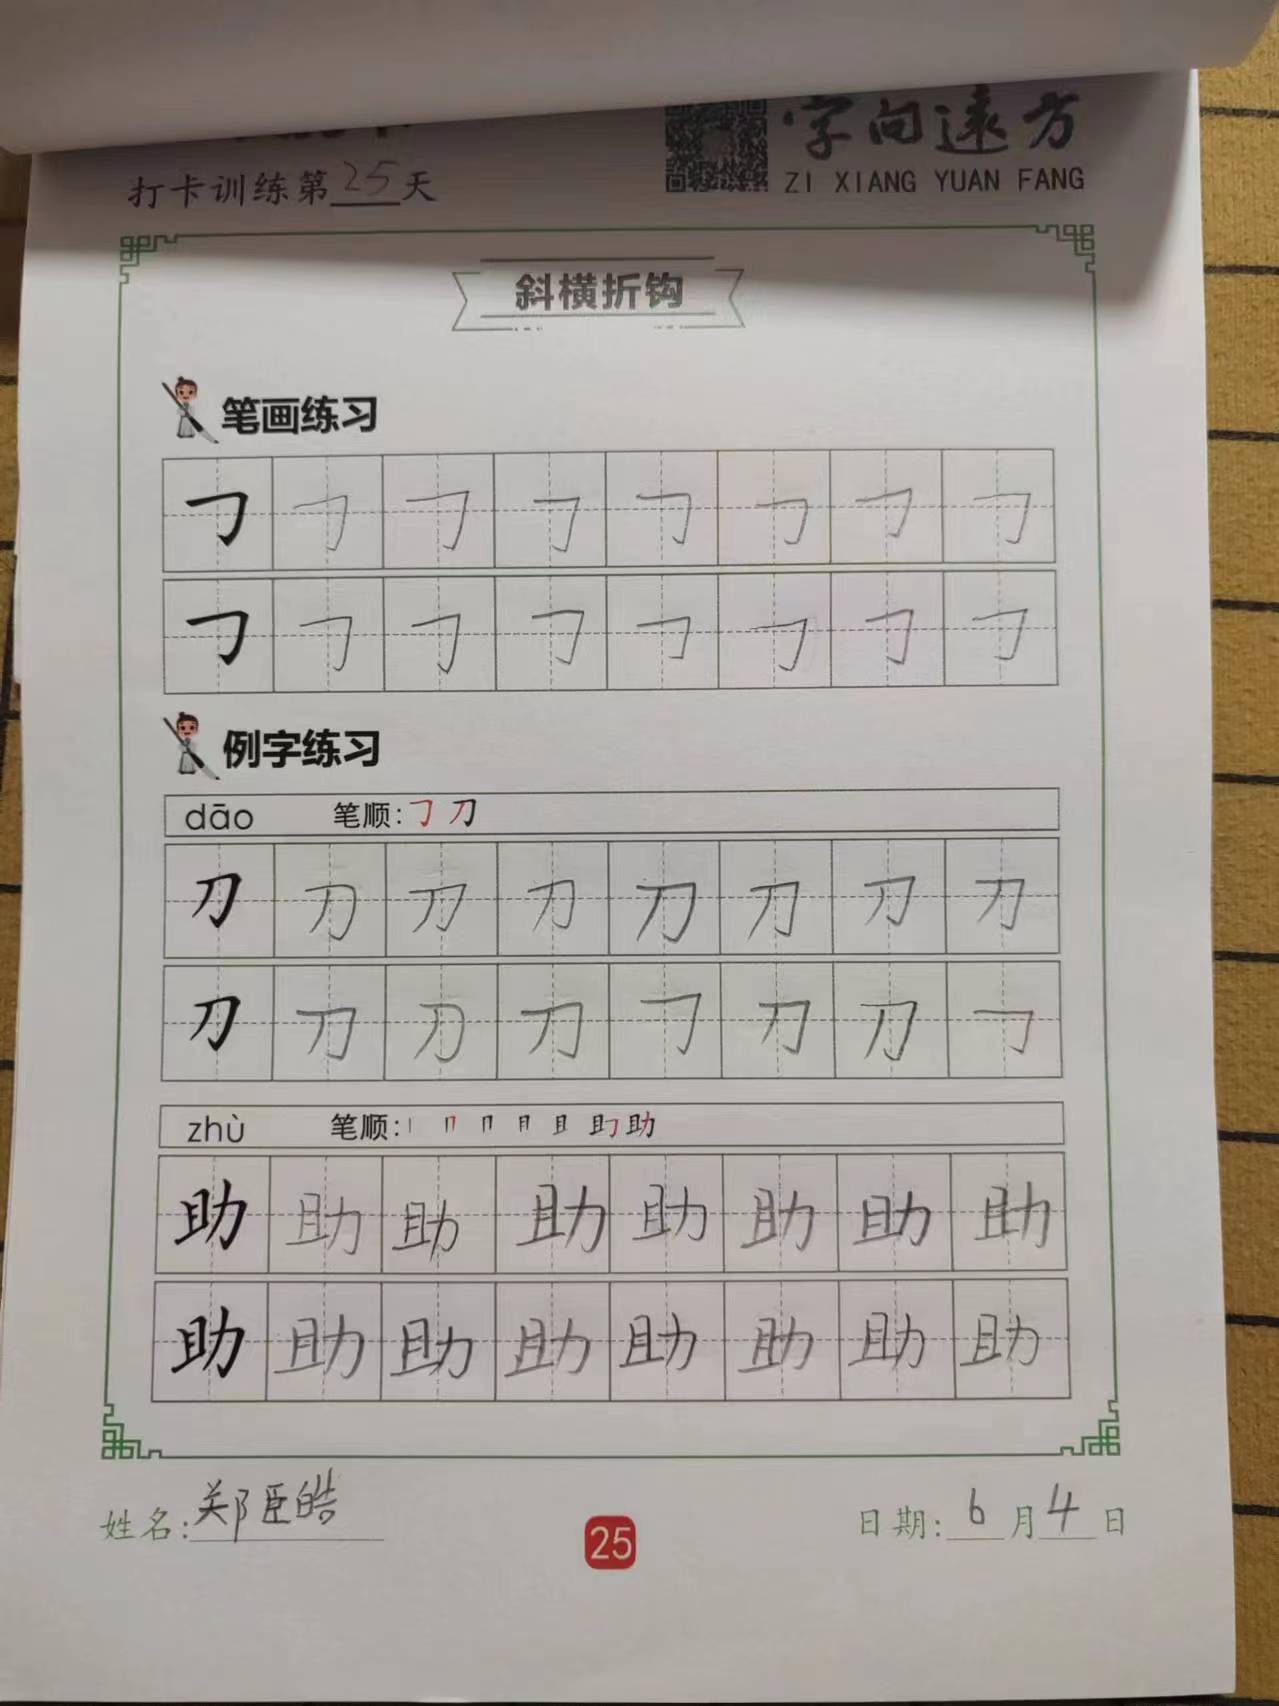 字向遠方
打卡训练第25天
ZI XIANG YUAN FANG
斜横折钩
笔画练习
㇆ ㇆ ㇆ ㇆ ㇆ ㇆ ㇆ ㇆
㇆ ㇆ ㇆ ㇆ ㇆ ㇆ ㇆ ㇆
例字练习
dāo 笔顺:㇆ 刀
刀 刀 刀 刀 刀 刀 刀 刀
刀 刀 刀 刀 ㇆ 刀 刀 ㇆
zhù 笔顺: 助
助 助 助 助 助 助 助 助
助 助 助 助 助 助 助 助
姓名:郑臣皓
25
日期:6月4日